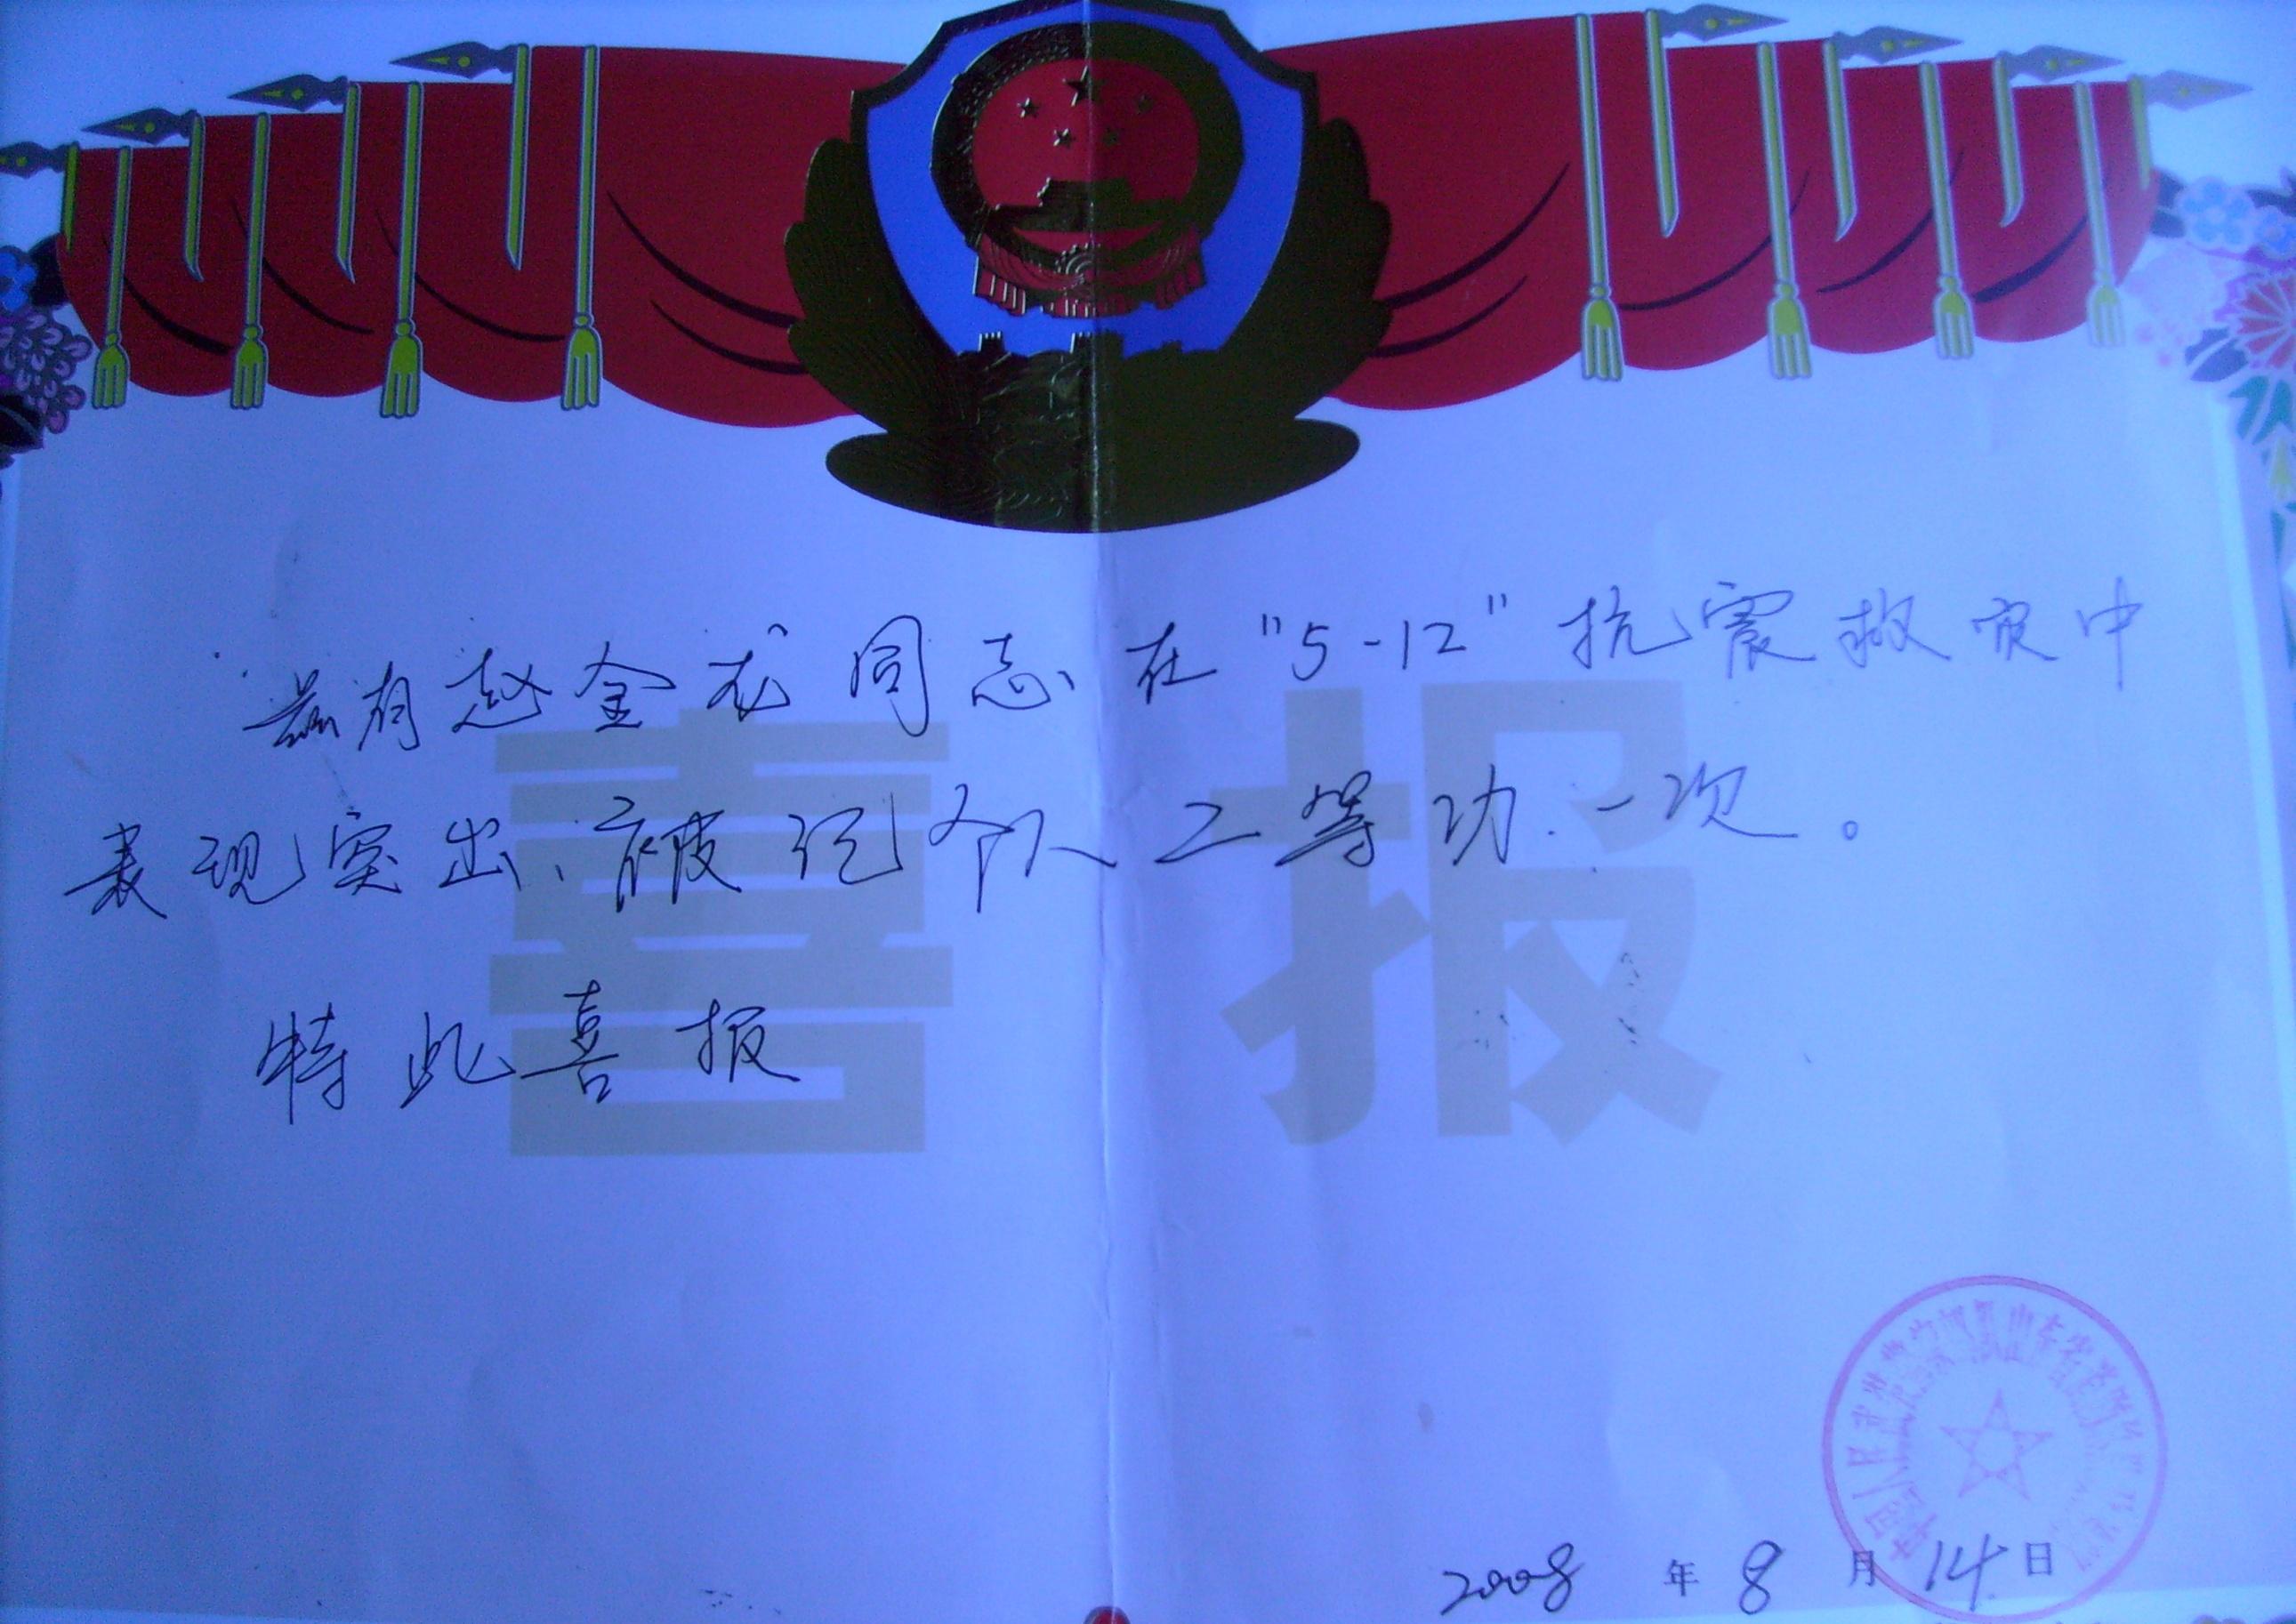 兹有赵金龙同志在"5-12"抗震救灾中
表现突出、被记个人二等功一次。
特此喜报
喜报
2008年8月14日